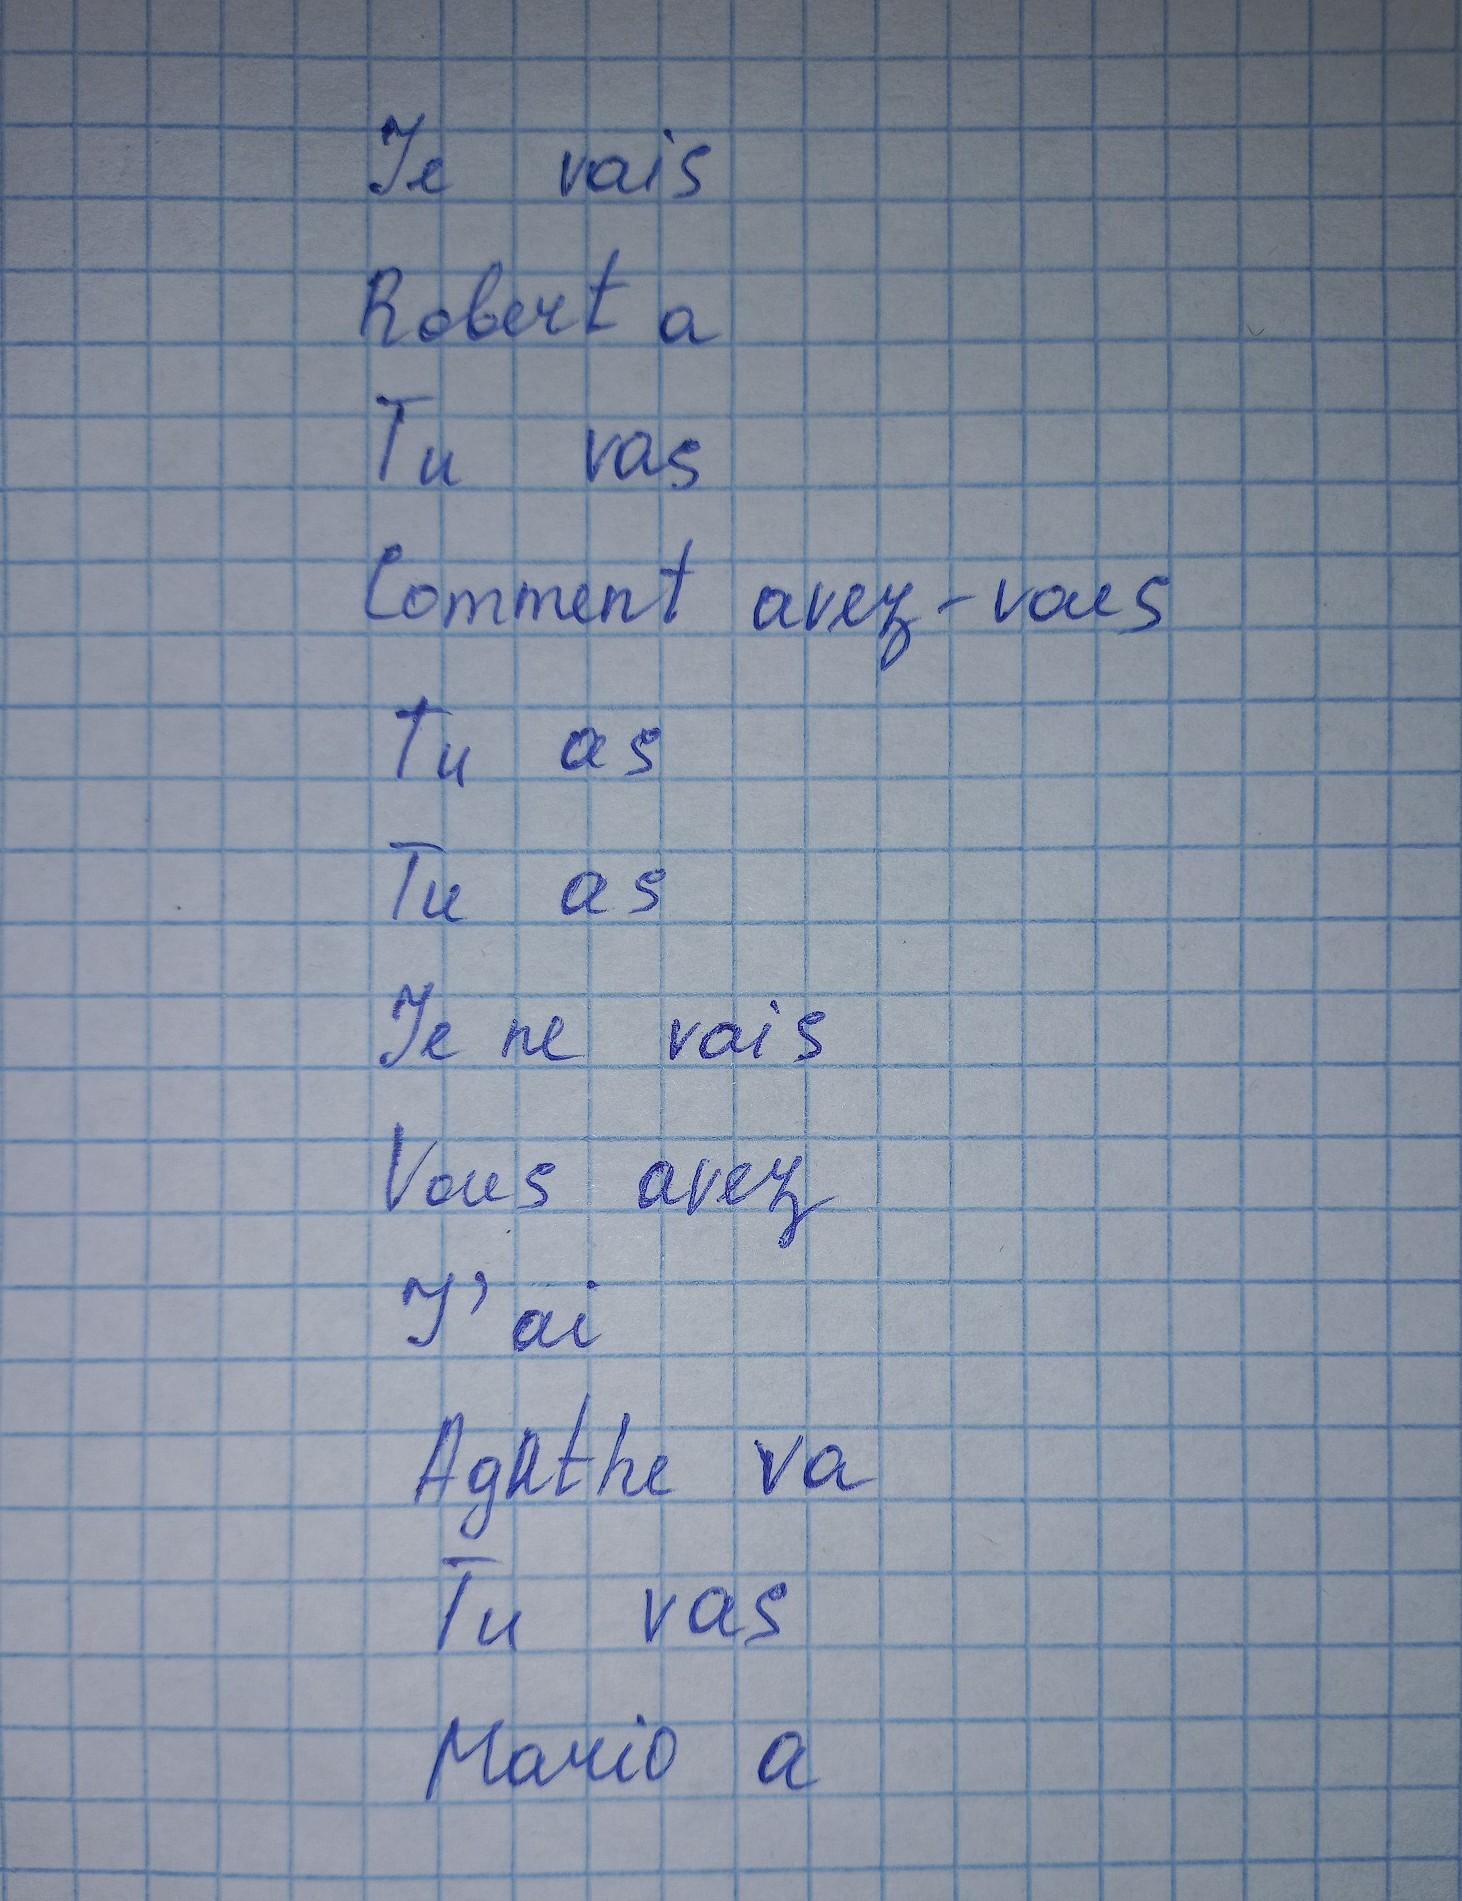 Je vais
Robert a
Tu vas
Comment avez-vous
Tu as
Tu as
Je ne vais
Vous avez
J'ai
Agathe va
Tu vas
Mario a